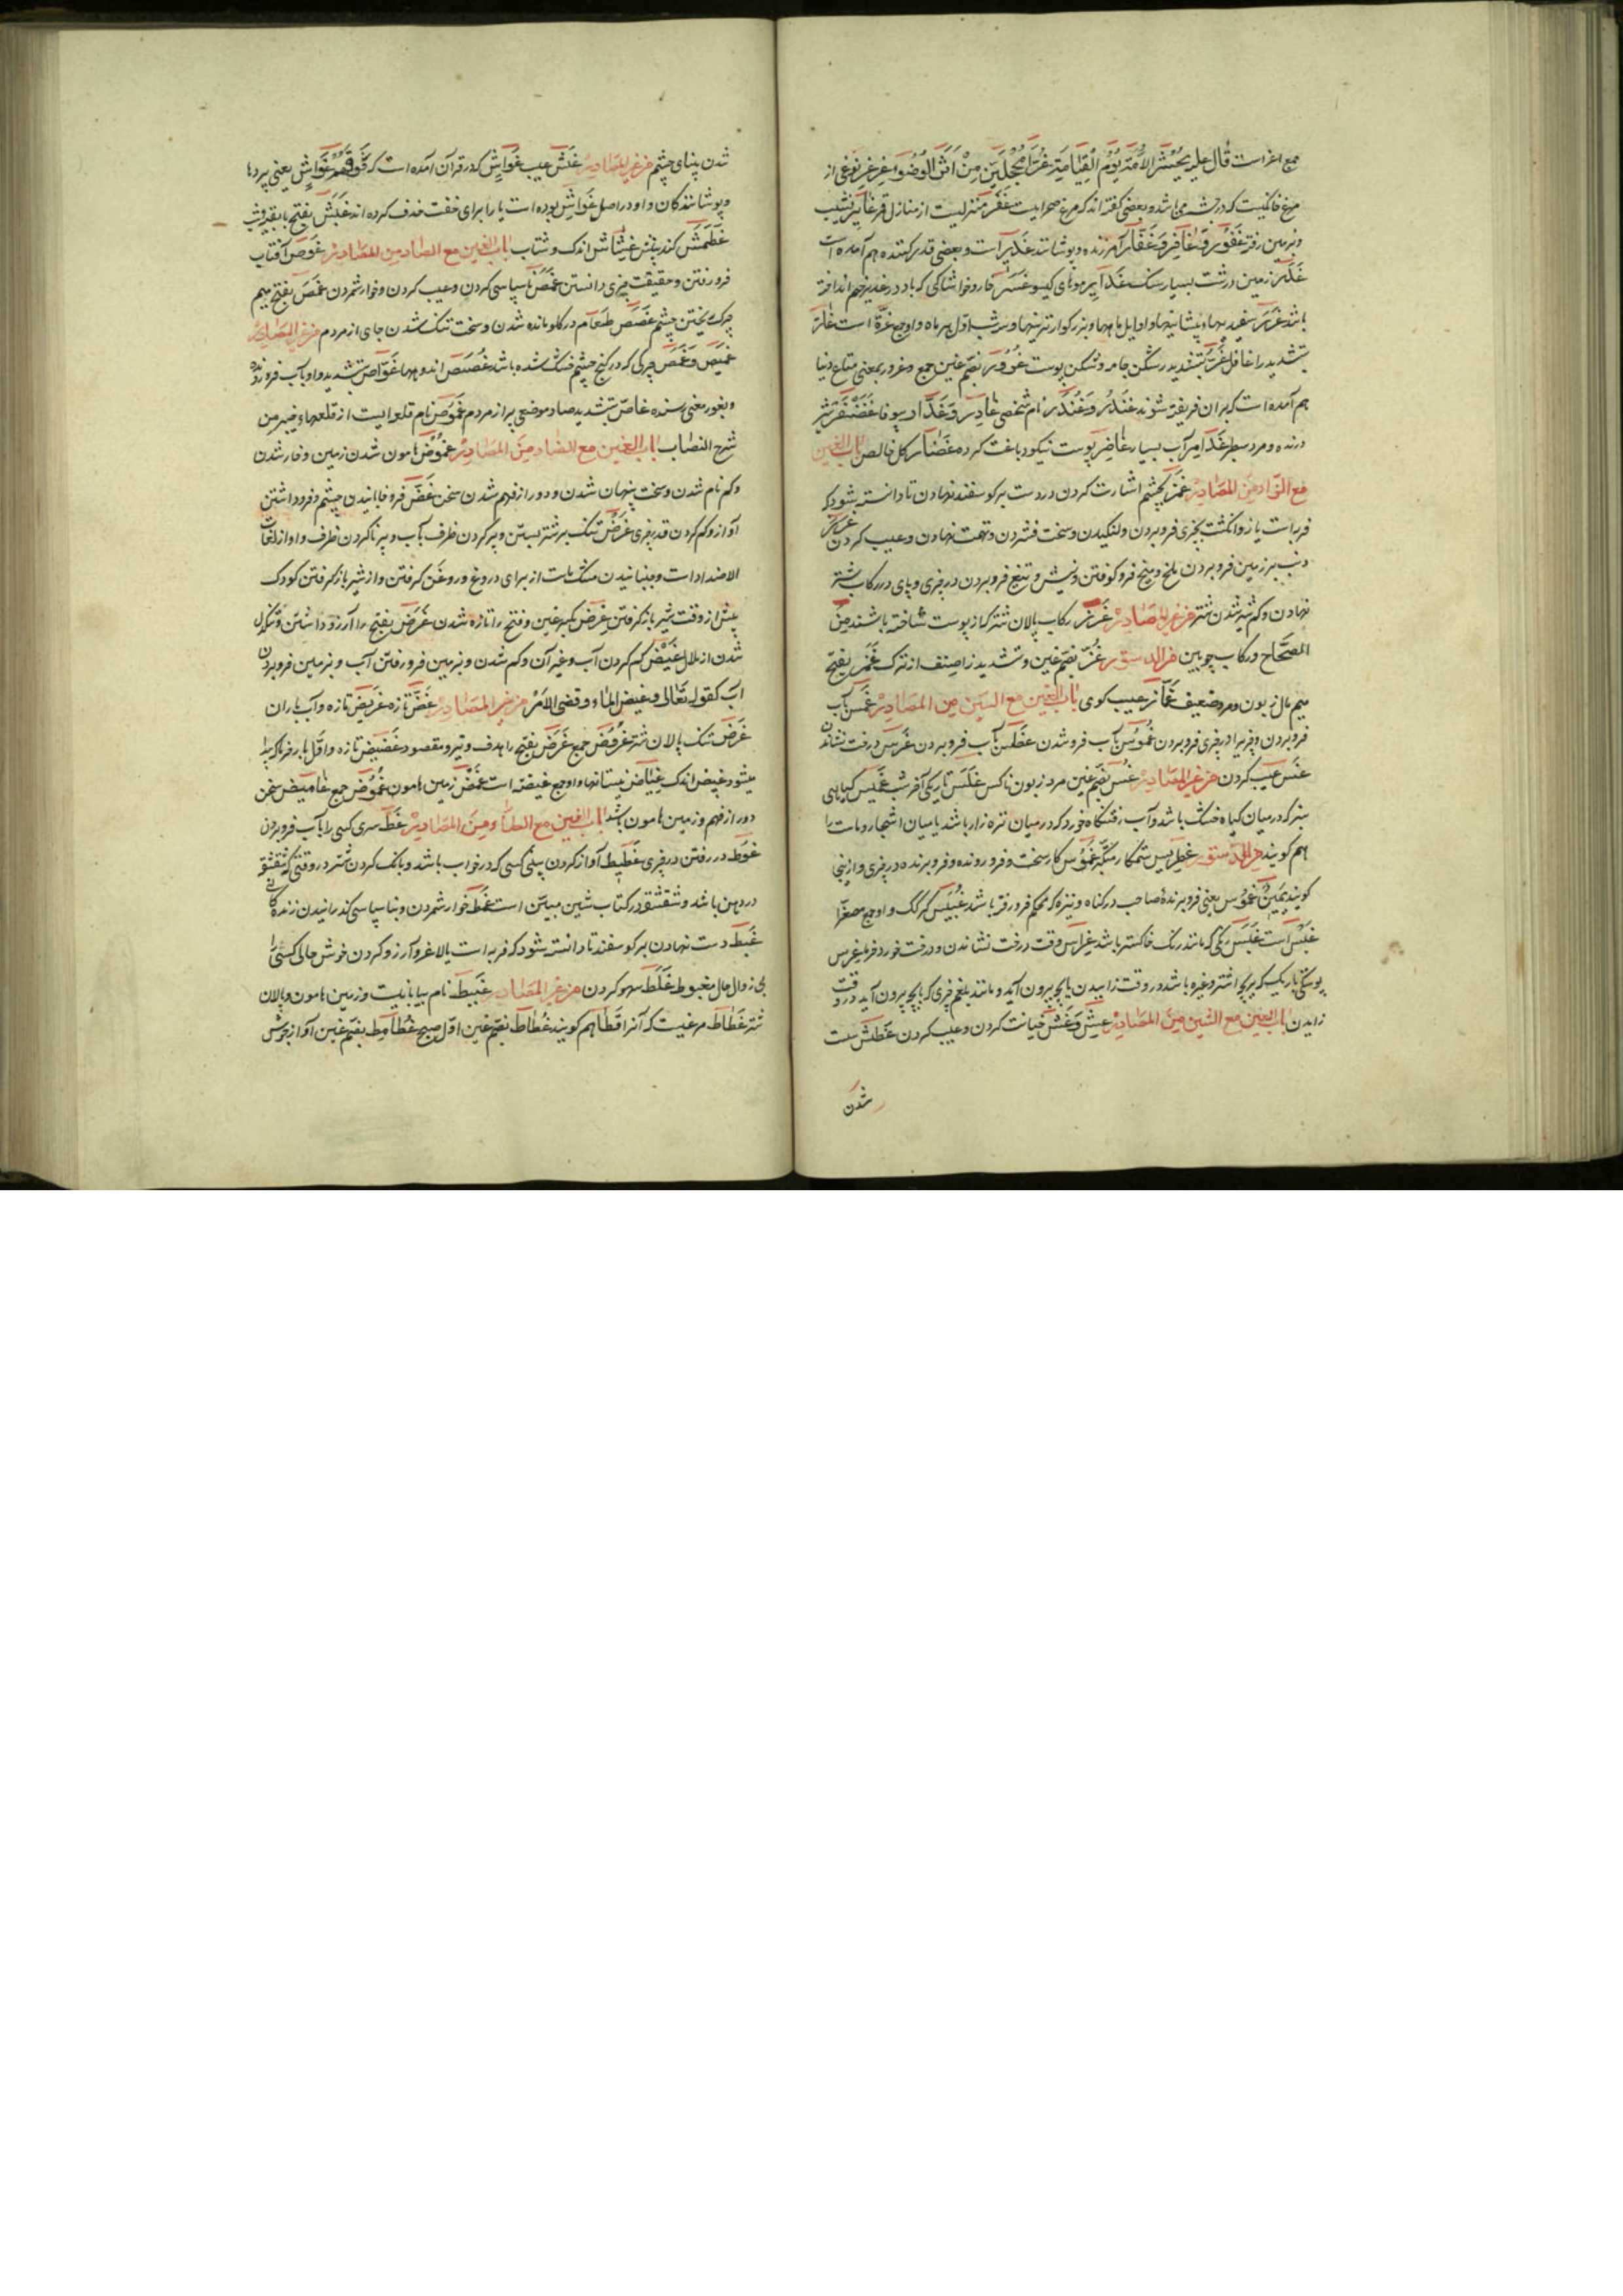 جمع اغر است قال علیه یحشر الامة یوم القیامة غرا محجلین من اثر الوضوء غرغر نوعی از
مرغ خاکیست که در حبشه می باشد و بعضی گفته اند که مرغ صحرایست غفر منزلیست از منازل قمر غابر نشیب
و بزمین رفته غفور و غافر و غفار آمرزنده و پوشاننده غدیر آبست و بعضی قدر کننده هم آمده است
غدر زمین درشت بسیار سنگ غدایر موئهای کیسو غسر خار و خاشاکی که باد در غدیر خم انداخته
باشد غرر سفید یها و پیشانیها و اوایل ماهها و بزرکوارترینها و سه شب اول هر ماه و او جمع غرة است غار
بتشدید را غافل غر بتشدید را شکن جامه و شکن پوست غرور بضم غین جمع و غرور بمعنی متاع دنیا
هم آمده است که بران فریفته شوند غندر و غندر نام شخصی غادر و غدار بیوفا غضنفر شیر
درنده و مرد سطبر غدامر آب بسیار غاضر پوست نیکو دباغت کرده غضار کل خالص باب الغین
مع الزاء من المصادر غمز بچشم اشارت کردن و دست بر کوسفند نهادن تا دانسته شود که
فربه است یا نه و انکشت بچیزی فرو بردن و لنکیدن و سخت فشردن و تهمت نهادن و عیب کردن غرز
دنب بر زمین فرو بردن ملخ و میخ فرو کوفتن و نیش و تیغ فرو بردن در چیزی و پای در رکاب شتر
نهادن و کم شیر شدن شتر من غیر المصادر غرز رکاب پالان شتر که از پوست ساخته باشند من
الصحاح و رکاب چوبین من الدستور غز بضم غین و تشدید زا صنف از ترک غمز بفتح
میم مال زبون و مرد ضعیف غماز عیب کوی باب الغین مع السین من المصادر غمس بآب
فرو بردن و چیزی را در چیزی فرو بردن غموس بآب فرو شدن غطس بآب فرو بردن غرس درخت نشاندن
غس عیب کردن من غیر المصادر غس بضم غین مرد زبون ناکس غلس تاریکی آخر شب غمیس کیاهی
سبز که در میان کیاه خشک باشد و آب رفتنکاه خورد که در میان تره زار باشد یا میان اشجار و مات را
هم کویند من الدستور غطریس ستمکار متکبر غموس کار سخت و فرو رونده و فرو برنده در چیزی و از اینجا
کویند یمین غموس یعنی فرو برنده صاحب در کناه و نیزه که محکم فرو رفته باشد غبیس کرک و او جمع مصغر
غبس است غبس رنکی که مانند رنک خاکستر باشد غراس وقت درخت نشاندن و درخت خورد فرمایه غرس
پوستکی باریک که بر بچه اشتر و غیره باشد در وقت زاییدن با بچه بیرون آید و مانند بلغم چیزی که با بچه بیرون آید در وقت
زاییدن باب الغین مع الشین من المصادر غش و غشش خیانت کردن و عیب کردن غطش سست
شدن
شدن بینای چشم من غیر المصادر غش عیب غواش که در قرآن آمده است که فوقهم غواش یعنی پردها
و پوشانندکان و او در اصل غواشی بوده است یا را برای خفت حذف کرده اند غبش بفتح با بقیه شب
غطمش کند بینش غشاش اندک و شتاب باب الغین مع الصاد من المصادر غوص آفتاب
فرو رفتن و حقیقت چیزی دانستن غمص ناسپاسی کردن و عیب کردن و خوار شمردن غمص بفتح میم
چرک ریختن چشم غصص طعام در کلو مانده شدن و سخت تنک شدن جای از مردم من غیر المصادر
غمیص و غمص چرکی که در کنج چشم خشک شده باشد غصص اندوهها غواص بتشدید واو بآب فرو رونده
و بغور معنی رسنده غاص بتشدید صاد موضعی پر از مردم غموص نام قلعه ایست از قلعهاء خیبر من
شرح النصاب باب الغین مع الضاد من المصادر غموض هامون شدن زمین و خار شدن
و کم نام شدن و سخت پنهان شدن و دور از فهم شدن سخن غض فرو خابانیدن چشم و فرو داشتن
آواز و کم کردن قدر چیزی غرض تنک بر شتر بستن و پر کردن ظرف بآب و پر ناکردن ظرف و او از لغات
الاضداد است و جنبانیدن مشک ماست از برای دروغ و روغن کرفتن و از شیر باز کرفتن کودک
پیش از وقت شیر باز کرفتن غرض بکسر غین و فتح را تازه شدن غرض بفتح را آرزو داشتن و تنکدل
شدن از ملال غیض کم کردن آب و غیر آن و کم شدن و بزمین فرو رفتن آب و بزمین فرو بردن
آب کقوله تعالی و غیض الماء و قضی الامر من غیر المصادر غض تازه غریض تازه و آب باران
غرض تنک پالان شتر غروض جمع غرض بفتح را هدف و تیر و مقصود غضیض تازه و اول بار خرما که پیدا
میشود غیض اندک غیاض نیستانها و او جمع غیضه است غمض زمین هامون غموض جمع غامض سخن
دور از فهم و زمین هامون باشد باب الغین مع الطاء من المصادر غط سر کسی را بآب فرو بردن
غوط در رفتن در چیزی غطیط آواز کردن بینی کسی که در خواب باشد و بانک کردن شتر در وقتی که شقشقه
در دهن باشد و شقشقه در کتاب شین مبین است غمط خوار شمردن و بناسپاسی کذرانیدن زنده کانی
غبط دست نهادن بر کوسفند تا دانسته شود که فربه است یا لاغر و آرزو کردن خوش حالی کسی
بی زوال حال مغبوط غلط سهو کردن من غیر المصادر غبیط نام بیابانیست و زمین هامون و پالان
شتر غطاط مرغیست که آنرا قطا هم کویند غطاط بضم غین اول صبح غطامط بضم غین آواز جوش